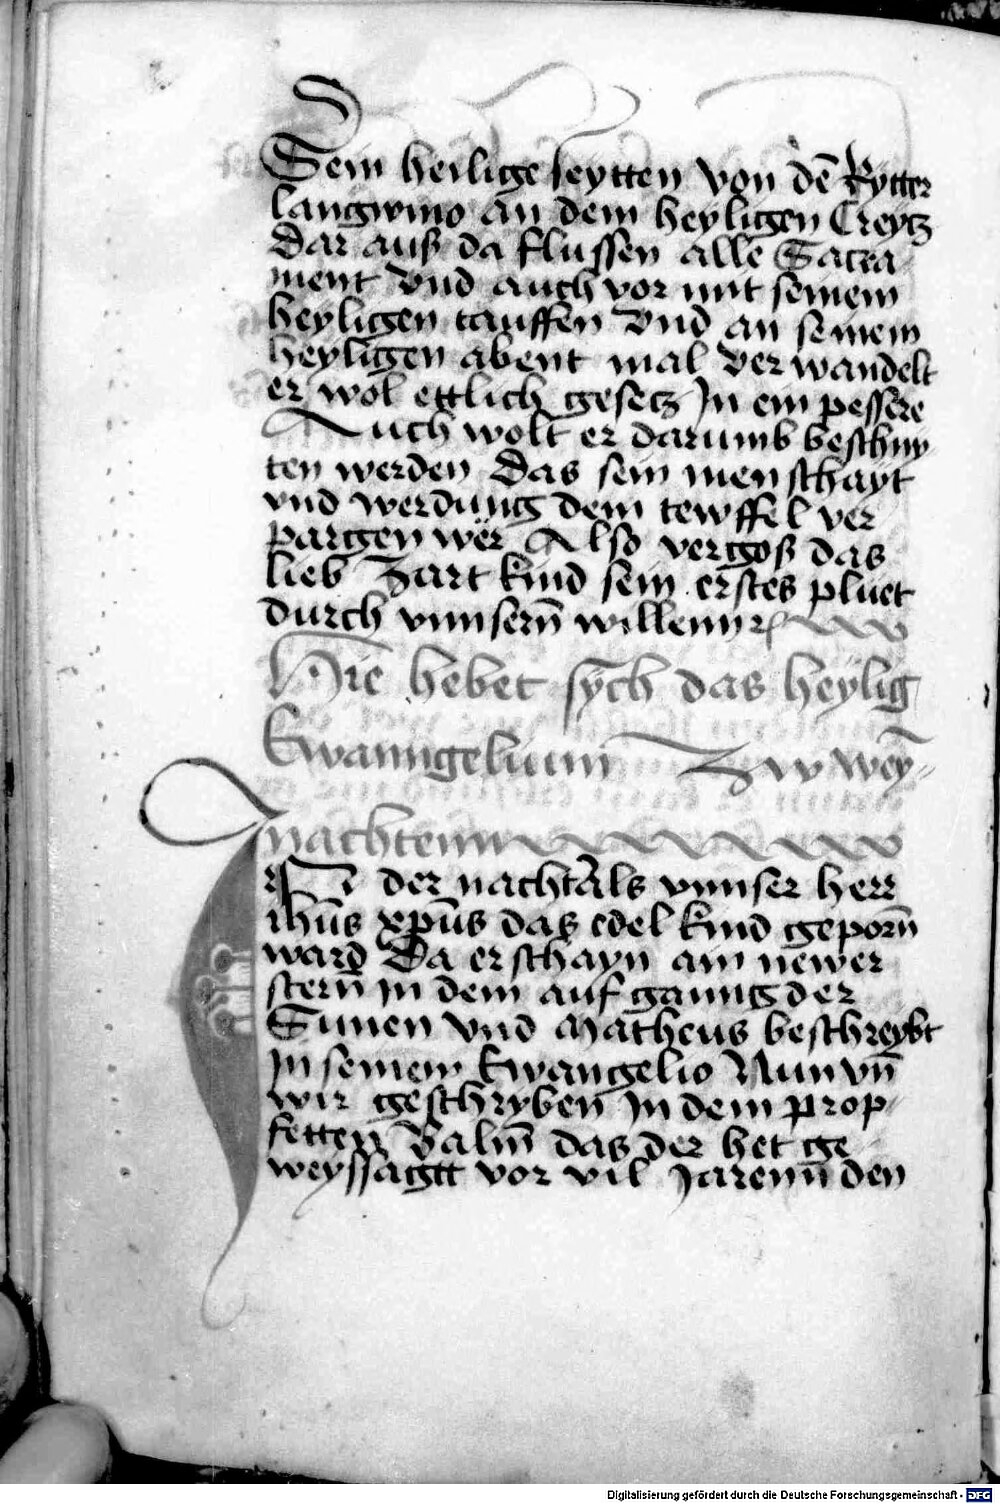 Sein heilige seytten von dē Rytter
langwino an dem heyligen Creytz
Dar auß da flussen alle Sacra
ment Vnd auch vor mit seinem
heyligen tauffen Vnd an seinem
heyligen abent mal Ver wandelt
er wol ettlich gesetz In ein pessere
Auch wolt er darumb beschny
ten werden Das sein menschayt
vnd werdung dem tewffel ver
pargen wër Also vergoß das
lieb Zart kind sein erstes pluet
durch vnnsern̄ willenn
Hie hebet sych das heylig
Ewanngeliumm Zw wey
nachtenn
In der nacht als vnnser herr
ihūs xp̄us das edel kind geporn̄
ward Da erschayn ain newer
stern̄ in dem auf ganng der
Sunen vnd Matheus beschreybt
In seinem Ewangelio Nun vin̄
wir geschryben In dem prop
fetten Balm̄ das der het ge
weyssagtt vor vil Jarenn̄ den
Digitalisierung gefördert durch die Deutsche Forschungsgemeinschaft - DFG